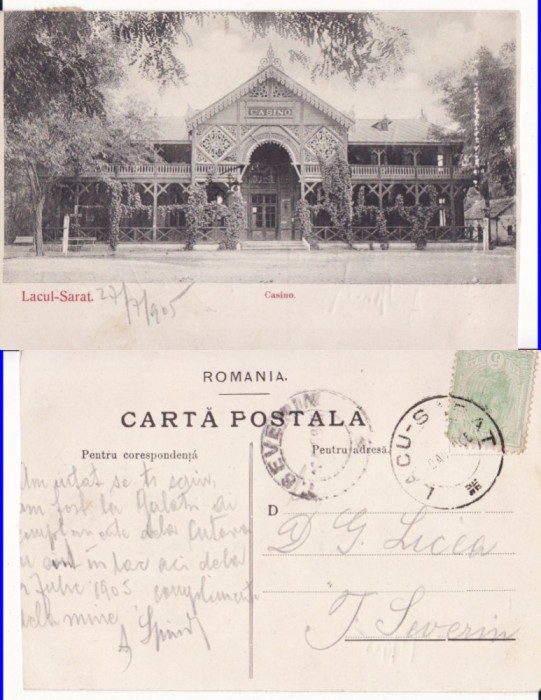 CASINO
Lacul-Sarat. 27/7/905
Casino.
ROMANIA.
CARTĂ POSTALA
Pentru corespondență
Pentru adresă
SEVERIN
LACU-SARAT
5
Am uitat se ti scriu
am fost la Galatu ai
complimente dela
au sunt in lac aci dela
Iulie 1905 compliment
dela mine
D
D G. Licea
T. Severin